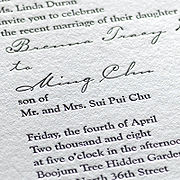 Ms. Linda Duran
invite you to celebrate
the recent marriage of their daughter
Brenna Tracy
to
Ming Chu
son of
Mr. and Mrs. Sui Pui Chu
Friday, the fourth of April
Two thousand and eight
at five o'clock in the afternoon
Boojum Tree Hidden Garden
North 36th Street